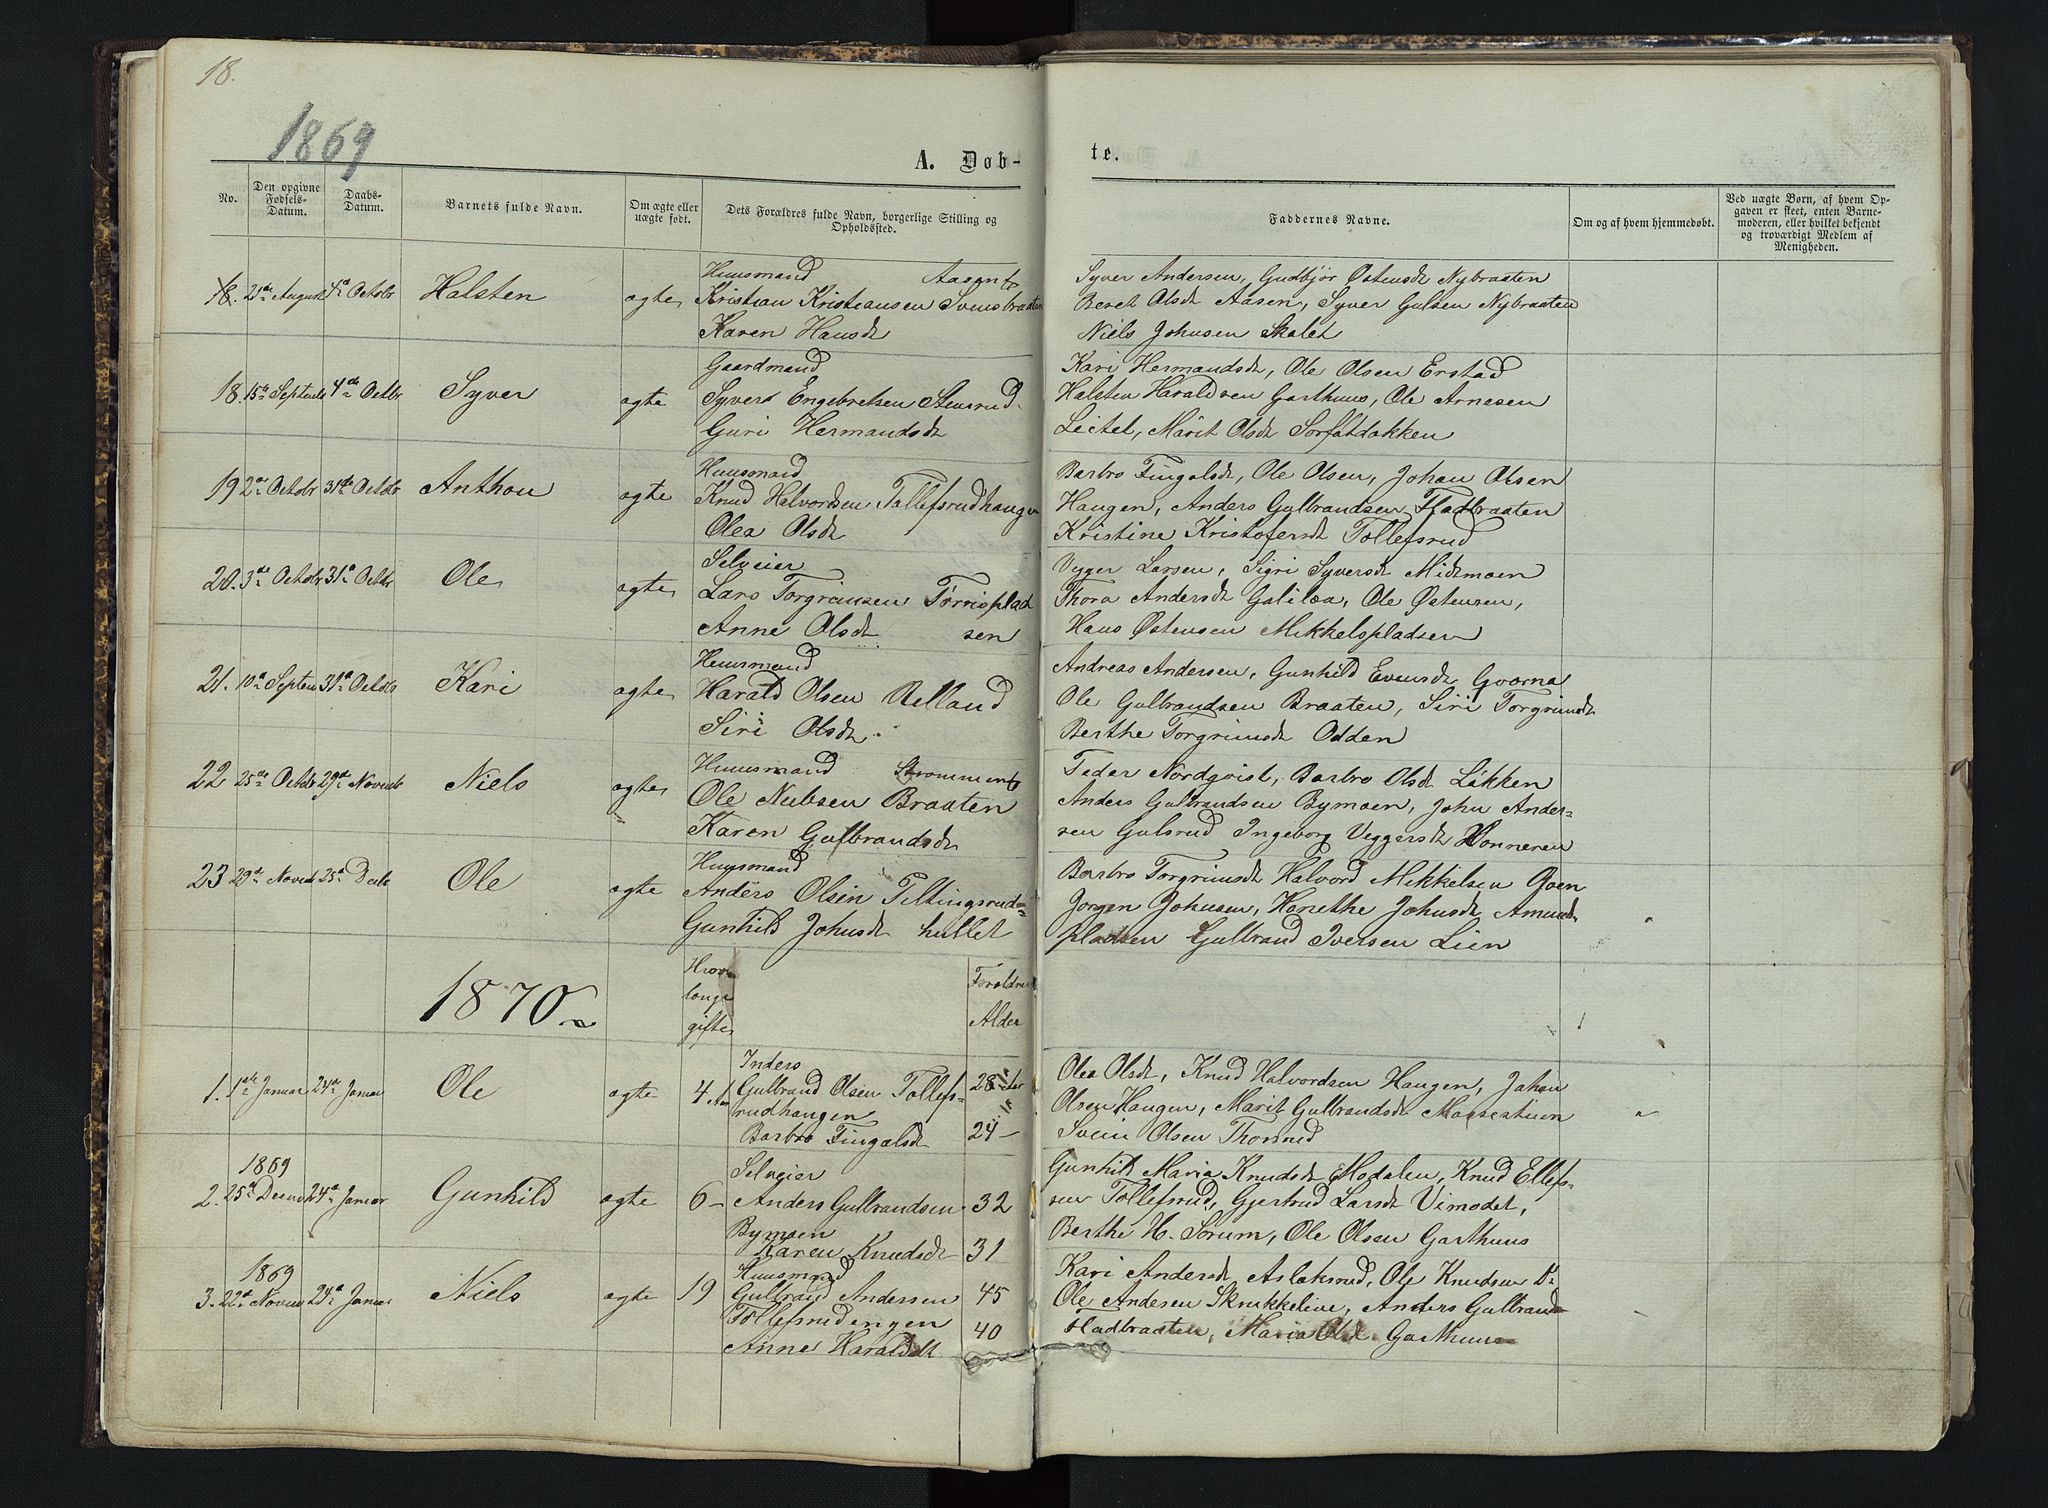 18.
1869
A. Døb-
te.
No.
Den opgivne Fødsels-Datum.
Daabs-Datum.
Barnets fulde Navn.
Om ægte eller uægte født.
Dets Forældres fulde Navn, borgerlige Stilling og Opholdssted.
Faddernes Navne.
Om og af hvem hjemmedøbt.
Ved uægte Børn, af hvem Op-
gaven er skeet, enten Barne-
moderen, eller hvilket bekjendt
og troværdigt Medlem af
Menigheden.
18. August Octobr Halsten ægte
Huusmand
Kristian Kristiansen Svensbraaten
Karen Hansdt
Syver Andersen, Gudbjør Østensdt Nybraaten
Beret Olsdt Aasen, Syver Gulsen Nybraaten
Niels Johnsen Skalet
18. 15de Septembr 4de Octbr Syver ægte
Gaardmand
Syver Engebretsen Stensrud
Guri Hermandsdt
Kari Hermandsdt, Ole Olsen Erstad
Halsten Haraldsen Garthuus, Ole Arnesen
Marit Olsdt
19 2den Octobr 31te Octobr Anthon ægte
Huusmand
Knud Halvordsen Tollefsrudhaugen
Olea Olsdt
Barbro Fingalsdt, Ole Olsen, Johan Olsen
Haugen, Anders Gulbrandsen Fladbraaten
Kristine Kristofersdt Tollefsrud
20. 3de Octobr 31te Octbr Ole ægte
Selveier
Lars Torgrimsen Tørrisplad
Anne Olsdt sen
Vegger Larsen, Sigri Syversdt Midtmoen
Thora Andersdt Galilæa, Ole Østensen,
Hans Østensen Mikkelspladsen
21. 10de Septem 31te Octobr Kari ægte
Huusmand
Harald Olsen Relland
Siri Olsdt
Andreas Andersen, Gunhild Evensdt Gværna
Ole Gulbrandsen Braaten, Siri Torgrimsdt
Berthe Torgrimsdt Odden
22 25de Octobr Novembr Niels ægte
Huusmand
Ole Nielsen Braaten
Karen Gulbrandsdt
Peder Nordqvist, Barbro Olsdt Løkken
Anders Gulbrandsen Bymoen, John Ander-
sen Gulsrud Ingeborg Veggersdt Honneren
23 Novem 25de Decbr Ole ægte
Huusmand
Anders Olsen Teltingsrud-
Gunhild Johnsdt hullet
Barbro Torgrimsdt Halvord Mikkelsen Goen
Jørgen Johnsen, Hanethe Johnsdt Amund-
pladsen Gulbrand Iversen Lien
1870
Hvor
længe
gifte
Forældre
Alder
1. 1ste Januar 24de Januar Ole ægte 4 Aar
Inders
Gulbrand Olsen Tollefs-
rudhaugen
Barbro Fingalsdt
28 Aar
24 -
Olea Olsdt, Knud Halvordsen Haugen, Johan
Olsen Haugen, Marit Gulbrandsdt
Svein Olsen Thorsrud
1869
2. 25de Decem 24de Januar Gunhild ægte 6 -
Selveier
Anders Gulbrandsen
Bymoen
Karen Knudsdt
32
31
Gunhild Maria Knudsdt Modalen, Knud Ellefs-
sen Tollefsrud, Gjertrud Larsdt Vimodet,
Berthe H. Sørum, Ole Olsen Garthuus
1869
3. 22de Novem 24de Januar Niels ægte 19
Huusmand
Gulbrand Andersen
Tollefsrudengen
Anne Haraldsdt
45
40
Kari Andersdt Aslaksrud, Ole Knudsen Do
Ole Andersen Skrukkelien, Anders Gulbrand
Fladbraaten, Maria Olsdt Garthuus